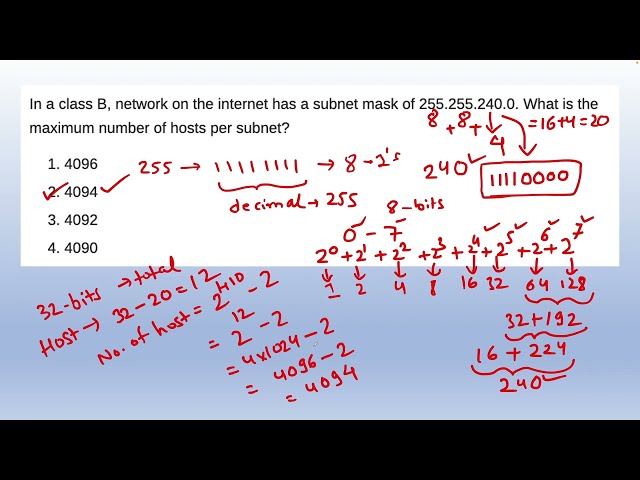 In a class B, network on the internet has a subnet mask of 255.255.240.0. What is the
maximum number of hosts per subnet?
8 + 8 + 4 = 16 + 4 = 20
1. 4096
2. 4094
3. 4092
4. 4090
255 → 11111111 → 8-1's
decimal → 255
240
11110000
8-bits
0 - 7
2^0 + 2^1 + 2^2 + 2^3 + 2^4 + 2^5 + 2^6 + 2^7
1 2 4 8 16 32 64 128
32 + 192
16 + 224
240
32-bits → total
Host → 32 - 20 = 12
No. of host = 2^HID - 2
= 2^12 - 2
= 4x1024 - 2
= 4096 - 2
= 4094